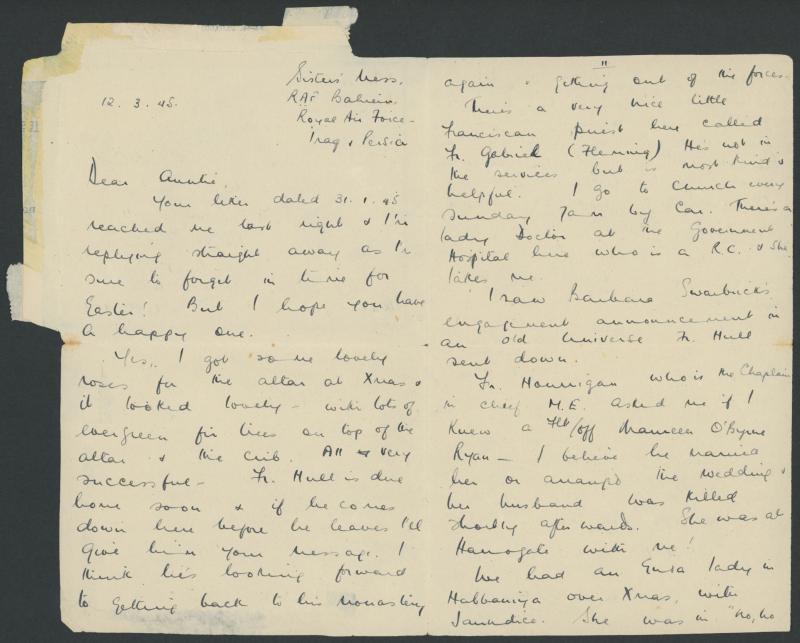 Sisters' Mess,
RAF Bahrein
Royal Air Force -
Iraq & Persia
12. 3. 45.
Dear Auntie,
Your letter dated 31.1.45
reached me last night & I'm
replying straight away as I'm
sure to forget in time for
Easter! But I hope you have
a happy one.
Yes, I got some lovely
roses for the altar at Xmas &
it looked lovely - with lots of
evergreen fir trees on top of the
altar & the crib. All very
successful - Fr. Hull is due
home soon & if he comes
down here before he leaves I'll
give him your message. I
think he's looking forward
to getting back to his monastery
"
again & getting out of the forces.
There's a very nice little
Franciscan priest here called
Fr. Gabriel (Fleming) He's not in
the services but is most kind &
helpful. I go to church every
Sunday 7am by car. There's a
lady Doctor at the Government
Hospital here who is a R.C. & she
takes me.
I saw Barbara Swarbrick's
engagement announcement in
an old Universe Fr. Hull
sent down.
Fr. Hannigan who is the Chaplain
in chief M.E. asked me if I
knew a Flt/Off Maureen O'Byrne
Ryan - I believe he married
her or arranged the wedding &
her husband was killed
shortly afterwards. She was at
Harrogate with me!
We had an Ensa lady in
Habbaniya over Xmas with
Jaundice. She was in "No, No